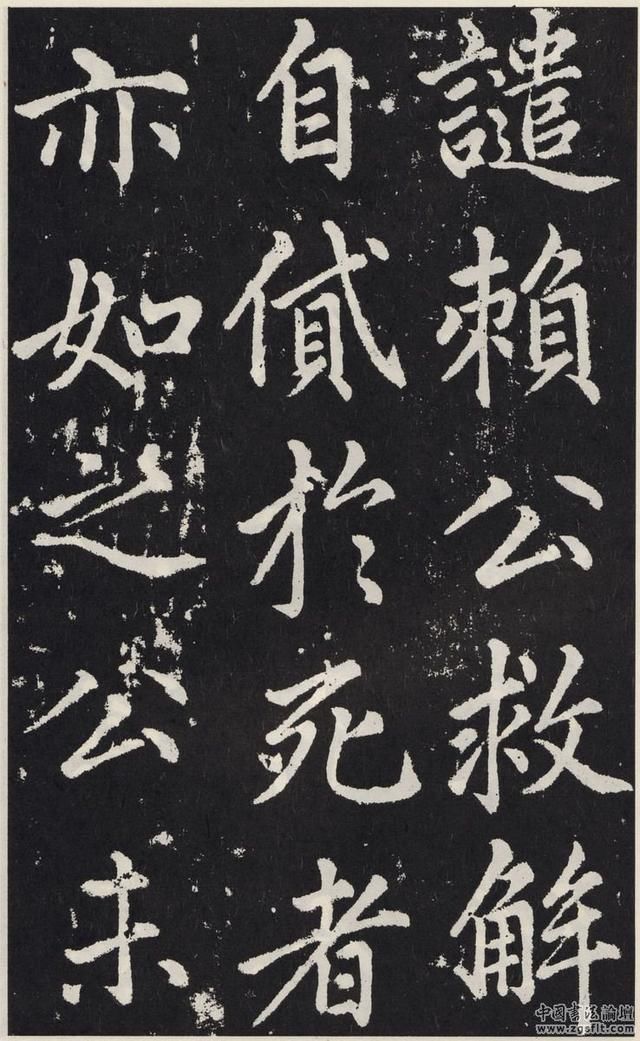 譴賴公救解
自貸於死者
亦如之公未
中国书法論壇
www.zgsflt.com